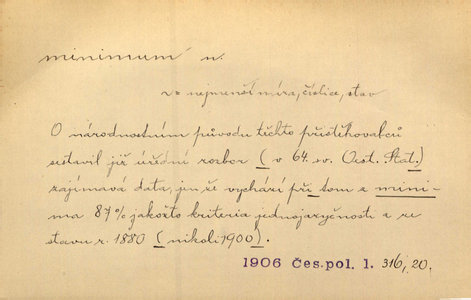 minimum n.
v = nejmenší míra, číslice, stav
O národnostním původu těchto přistěhovalců
sestavil již úřední rozbor ( v 64. sv. Oest. Stat.)
zajímavá data, jen že vychází při tom z mini-
ma 87% jakožto kriteria jednojazyčnosti a ze
stavu r. 1880 ( nikoli 1900 ).
1906 Čes. pol. 1. 316, 20.